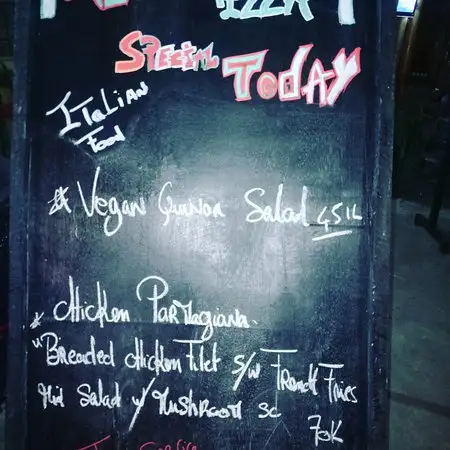 IZZA
SPECIAL TODAY
ITaLiAN
Food
Vegan Quinoa Salad 45K
Chicken Parmagiana.
"Breaded chicken Filet S/W French Fries
Mix Salad w/ Mushroom sc
70K